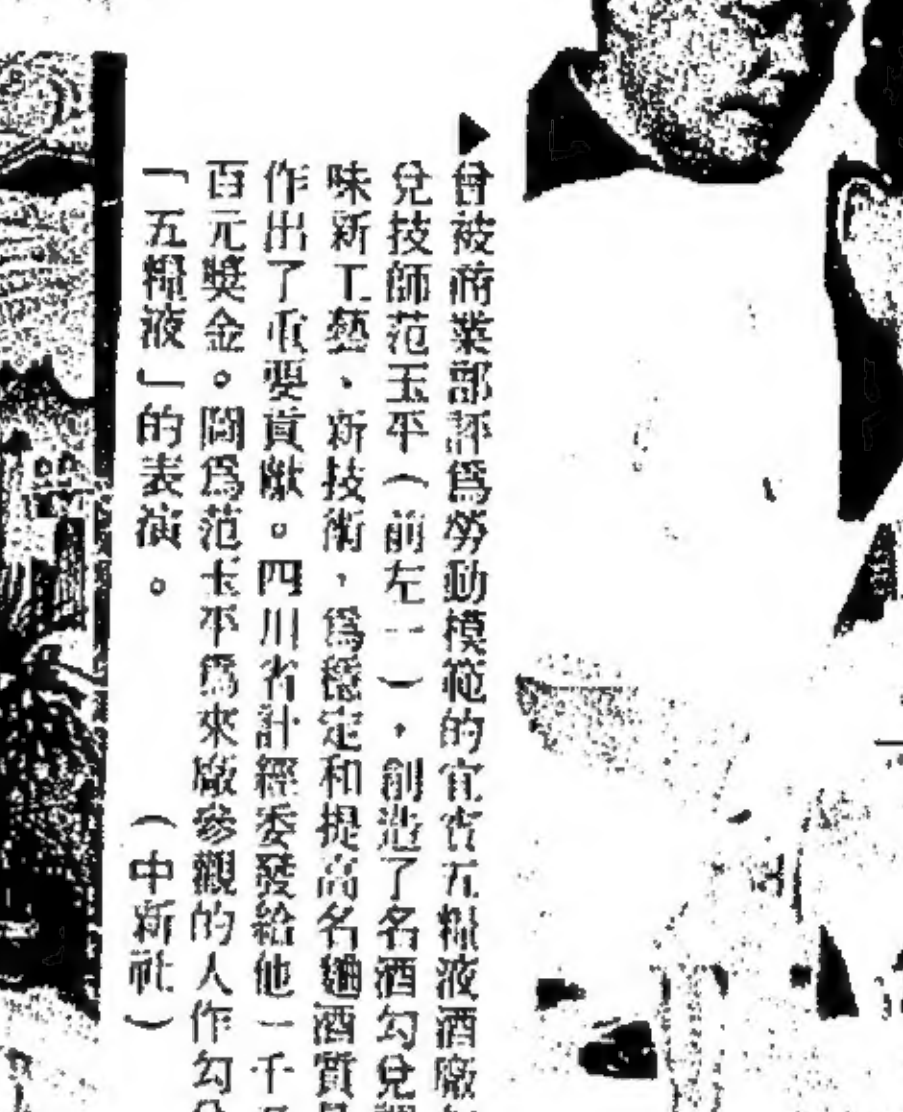 曾被商業部評爲勞動模範的宜賓五糧液酒廠
兌技師范玉平（前左一），創造了名酒勾兌
味新工藝、新技術，爲穩定和提高名麯酒質
作出了重要貢獻。四川省計經委發給他一千
百元獎金。圖爲范玉平爲來廠參觀的人作勾
「五糧液」的表演。（中新社）